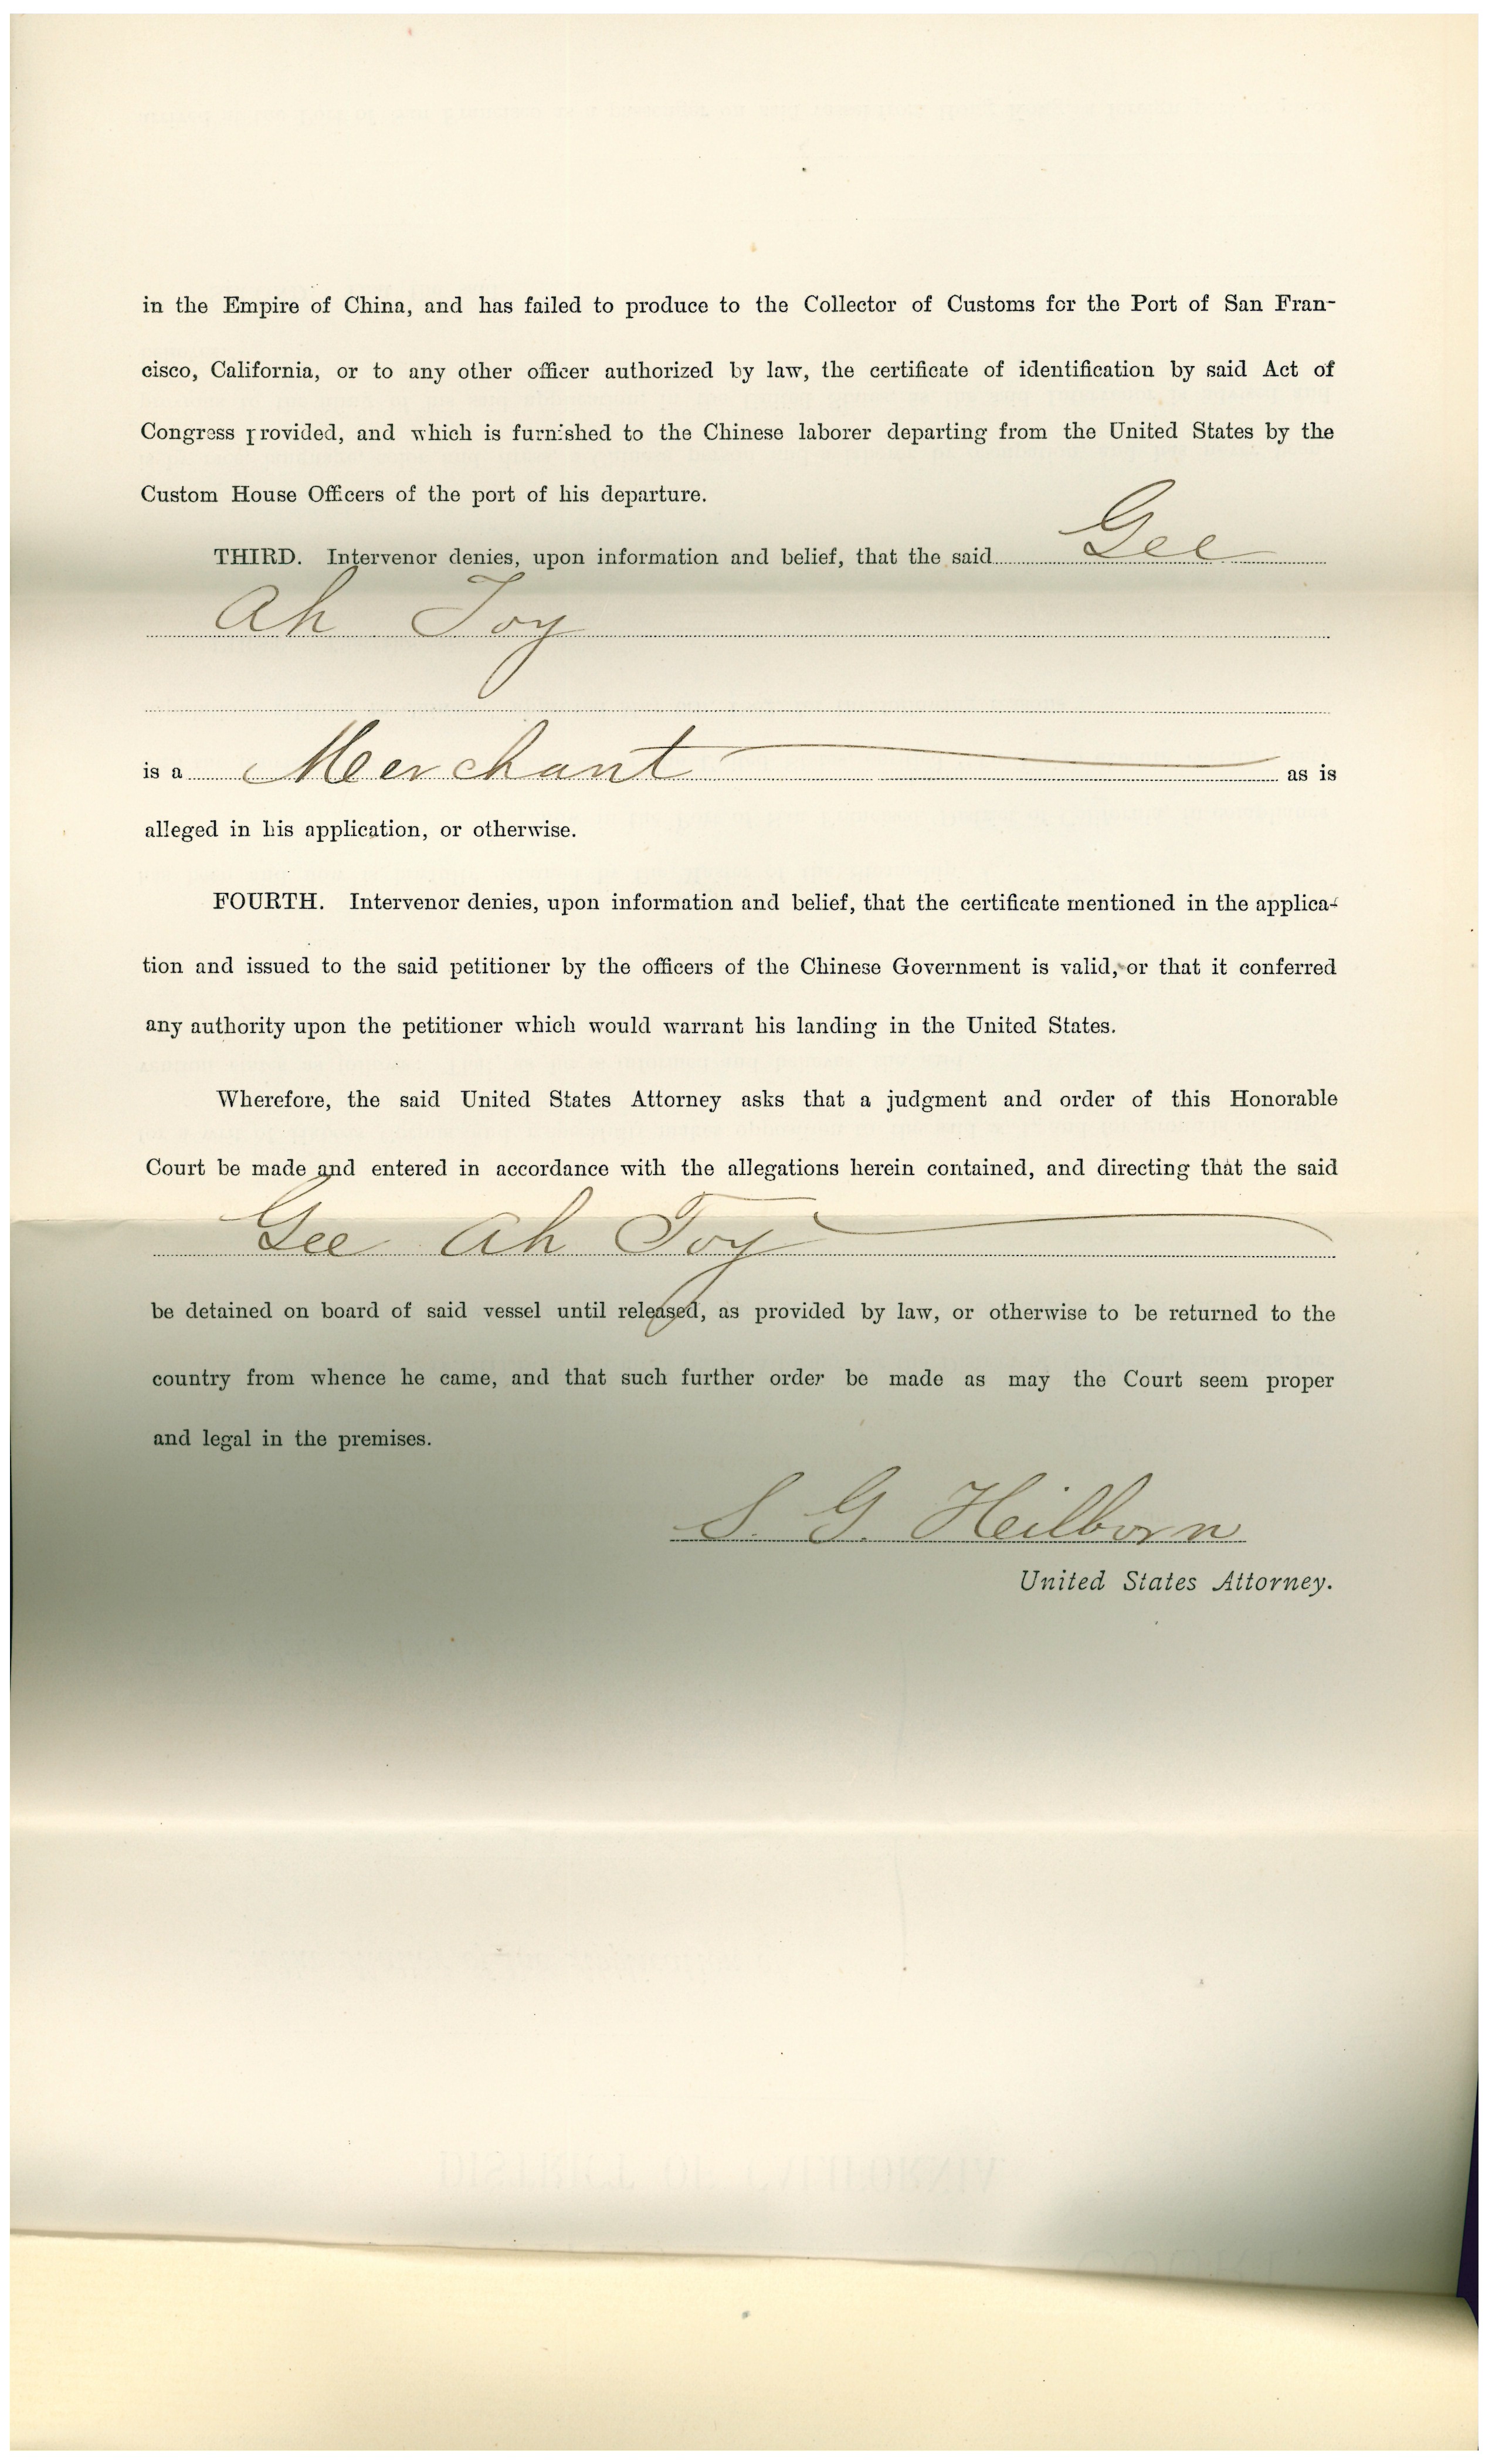 in the Empire of China, and has failed to produce to the Collector of Customs for the Port of San Fran-
cisco, California, or to any other officer authorized by law, the certificate of identification by said Act of
Congress provided, and which is furnished to the Chinese laborer departing from the United States by the
Custom House Officers of the port of his departure.
THIRD. Intervenor denies, upon information and belief, that the said Gee
Ah Toy
is a Merchant as is
alleged in his application, or otherwise.
FOURTH. Intervenor denies, upon information and belief, that the certificate mentioned in the applica-
tion and issued to the said petitioner by the officers of the Chinese Government is valid, or that it conferred
any authority upon the petitioner which would warrant his landing in the United States.
Wherefore, the said United States Attorney asks that a judgment and order of this Honorable
Court be made and entered in accordance with the allegations herein contained, and directing that the said
Gee Ah Toy
be detained on board of said vessel until released, as provided by law, or otherwise to be returned to the
country from whence he came, and that such further order be made as may the Court seem proper
and legal in the premises.
S. G. Heilborn
United States Attorney.